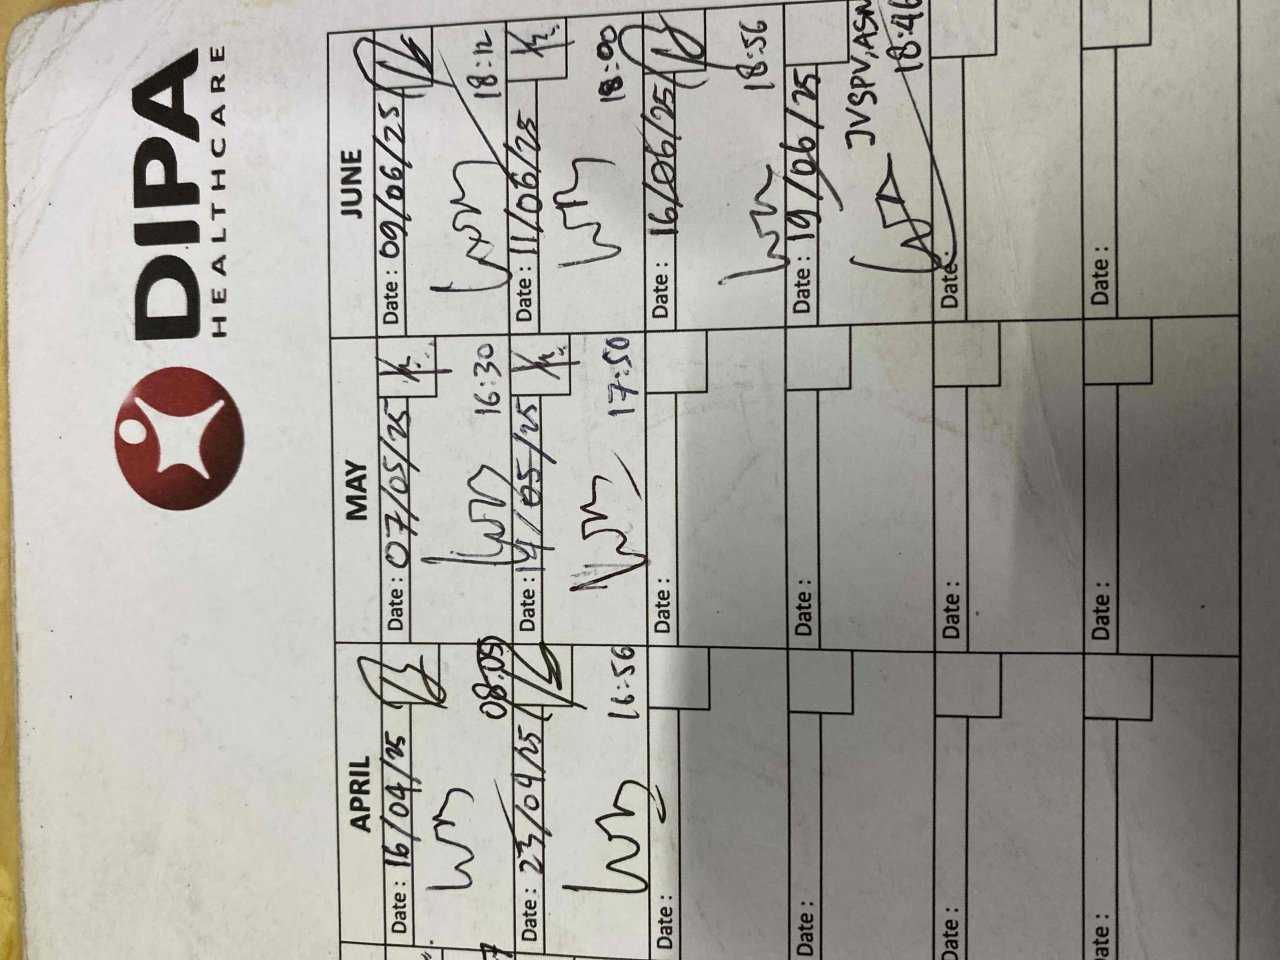 DIPA
HEALTHCARE
APRIL MAY JUNE
Date : 16/04/25 Date : 07/05/25 Date : 09/06/25
08:05 16:30 18:12
Date : 23/04/25 Date : 14/05/25 Date : 11/06/25
16:56 17:50 18:00
Date : Date : Date : 16/06/25
18:56
Date : Date : Date : 19/06/25
JVSPV, ASM
18:46
Date : Date : Date:
Date : Date : Date :